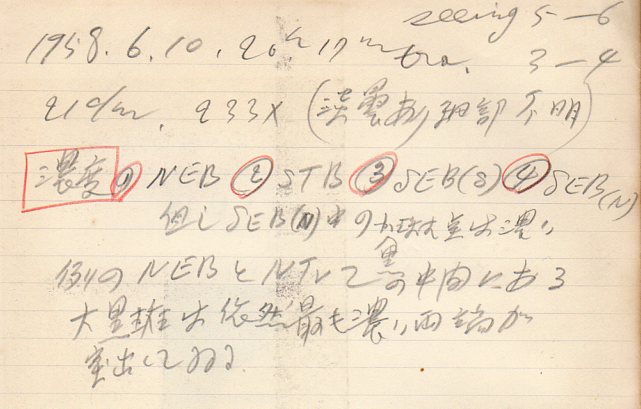 seeing 5-6
1958.6.10. 20h 17m tra. 3-4
21cm. 233X (淡雲あり細部不明)
濃度 ① NEB ② STB ③ SEB(S) ④ SEB(N)
但しSEB(N)中の 大黒は濃い
例のNEBとNT の中間にある
大黒斑は依然最も濃い両端が
突出してゐる.